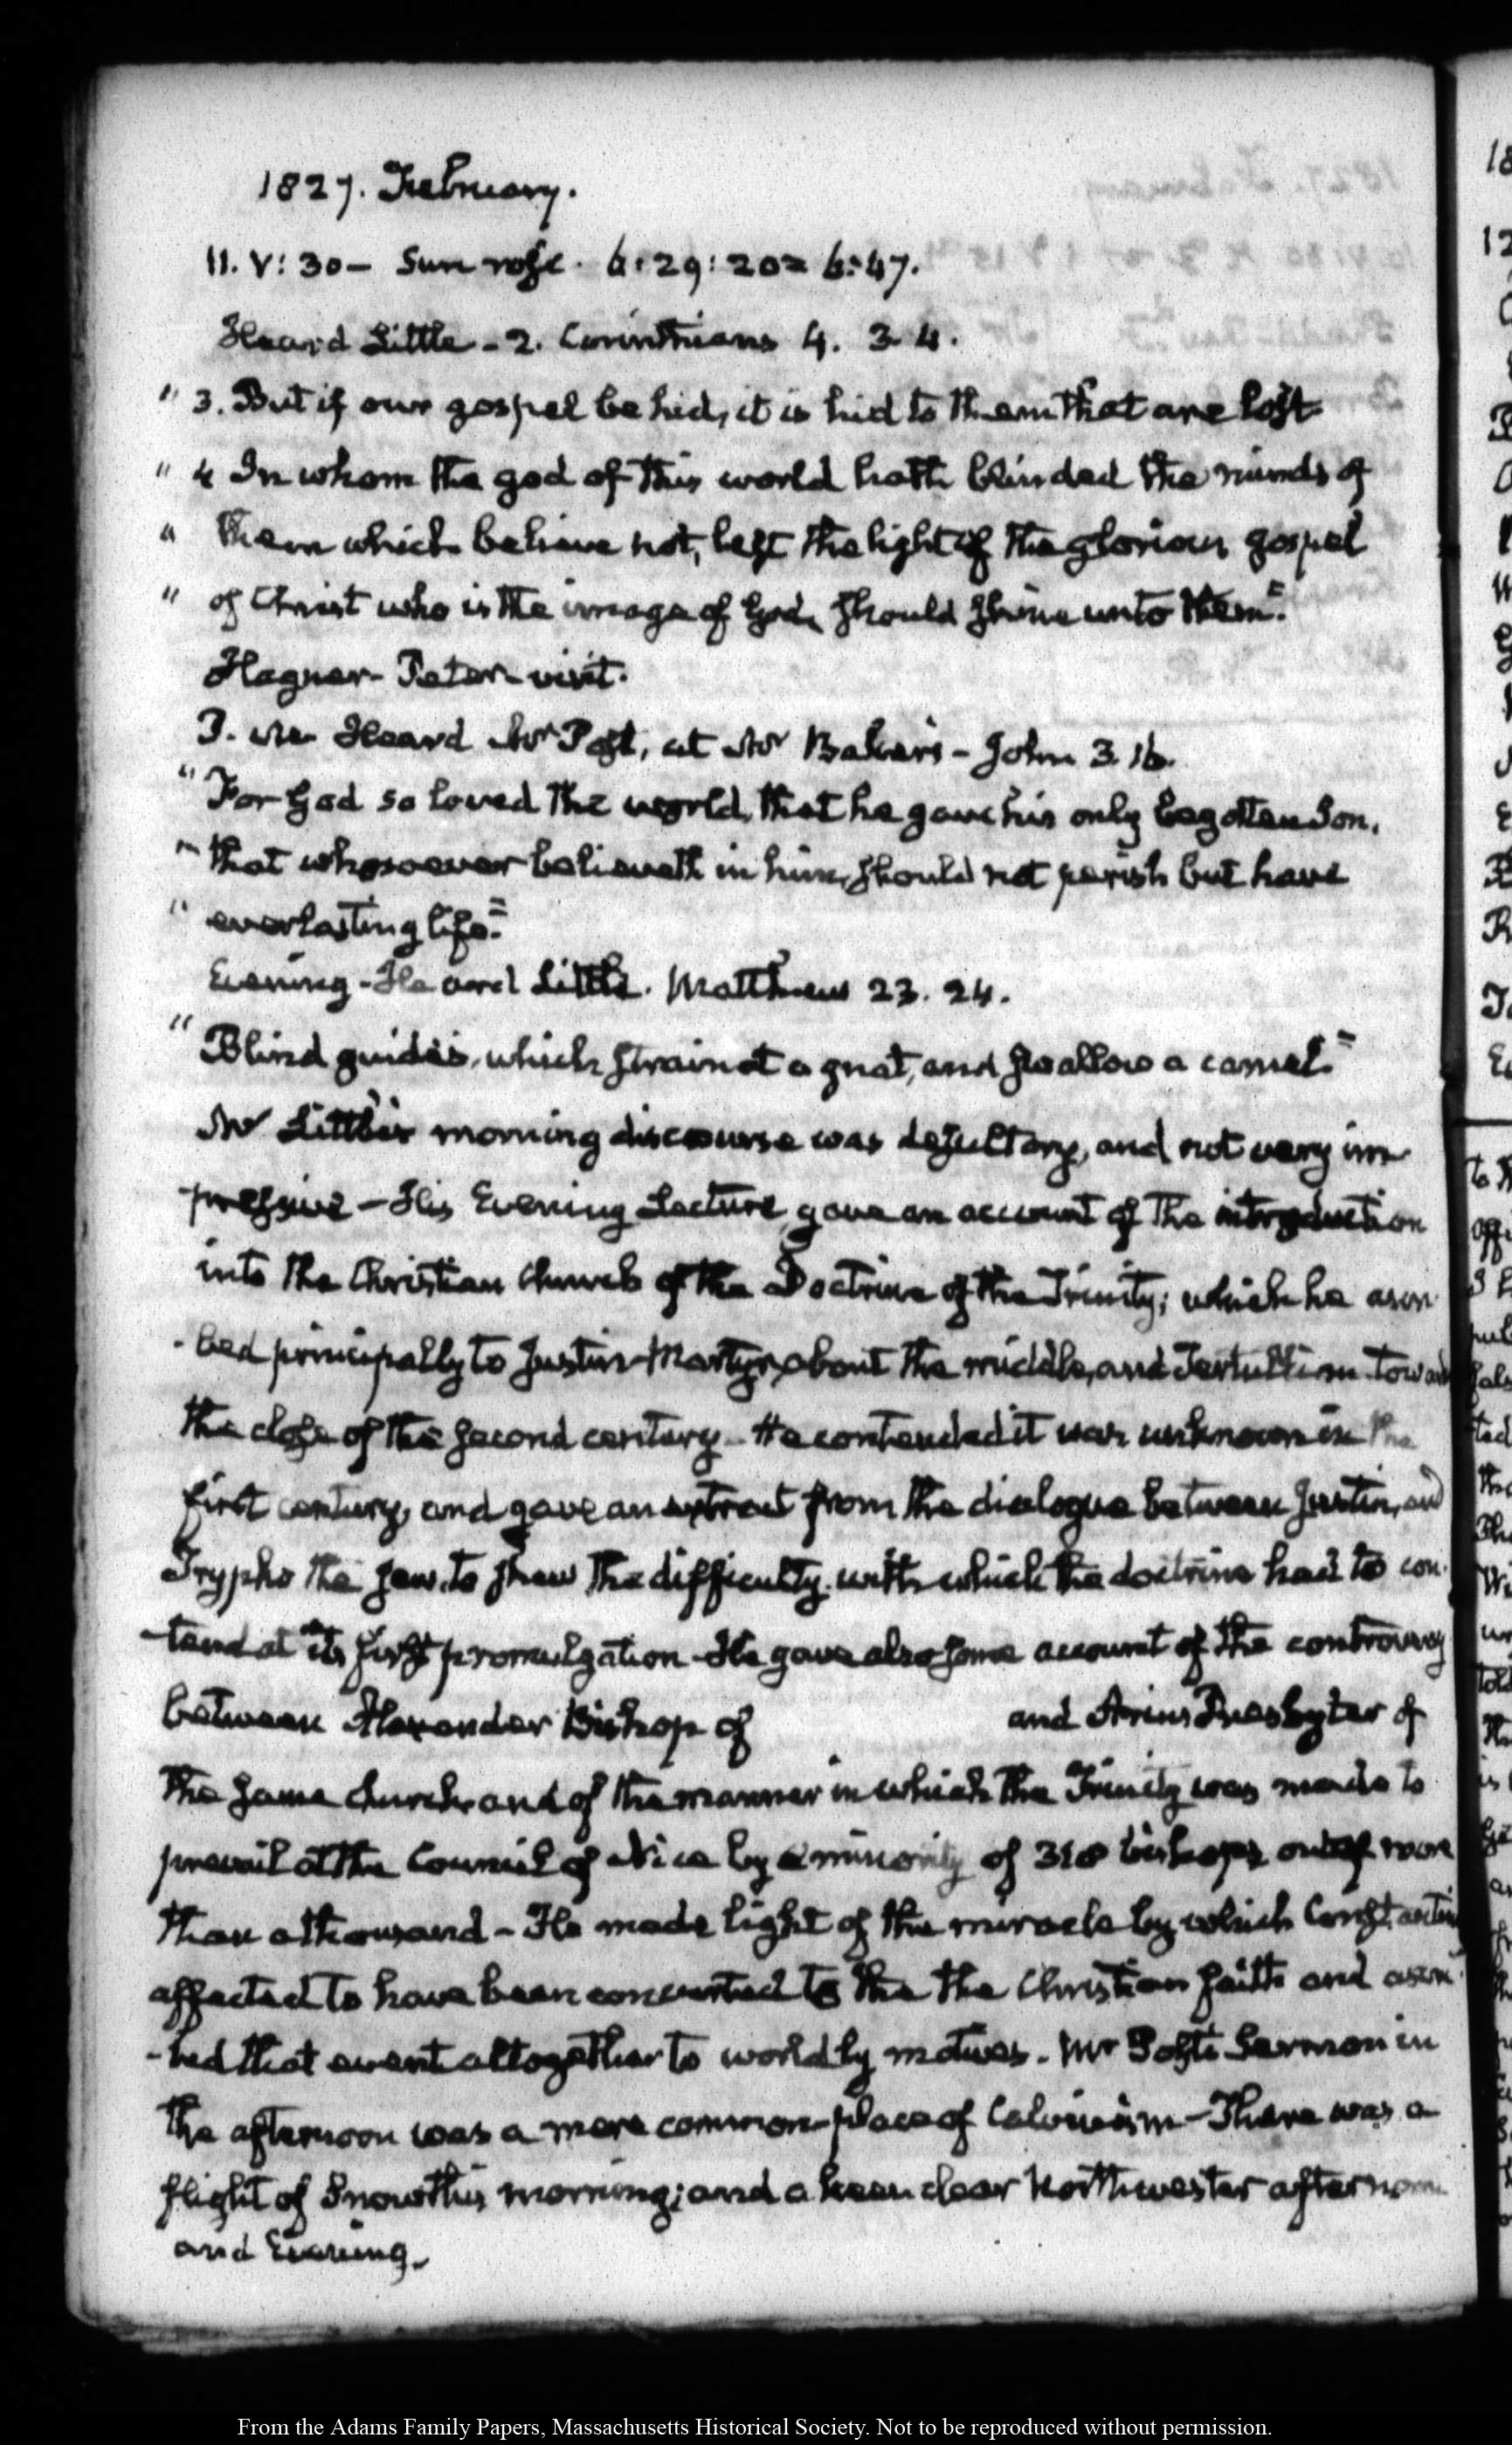 1827. February.
11. V: 30 – Sun rose. 6:29:20 = 6:47.
Heard Little – 2. Corinthians 4. 3. 4.
" 3. But if our gospel be hid, it is hid to them that are lost
" 4 In whom the god of this world hath blinded the minds of
" them which believe not, lest the light of the glorious gospel
" of Christ who is the image of God, should shine unto them."
Hagner – Peter – visit.
Heard Mr Post, at Mr Baker's – John 3. 16.
" For God so loved the world, that he gave his only begotten Son,
" that whosoever believeth in him, should not perish but have
" everlasting life."
Evening – Heard Little. Matthew 23. 24.
" Blind guides, which strain at a gnat, and swallow a camel."
Mr Little's morning discourse was desultory, and not very im
pressive – His Evening Lecture, gave an account of the introduction
into the Christian Church of the Doctrine of the Trinity; which he ascri
-bed principally to Justin Martyr, about the middle, and Tertullian toward
the close of the second century – He contended it was unknown in the
first century, and gave an extract from the dialogue between Justin, and
Trypho the Jew, to shew the difficulty with which the doctrine had to con
-tend at its first promulgation – He gave also some account of the controversy
between Alexander Bishop of and Arius Presbyter of
the same church and of the manner in which the Trinity was made to
prevail at the Council of Nice by a minority of 318 bishops out of more
than a thousand – He made light of the miracle by which Constantine
affected to have been converted to the the Christian faith and ascri
-bed that event altogether to worldly motives. Mr Post's Sermon in
the afternoon was a mere common-place of Calvinism – There was a
flight of Snow this morning; and a keen clear Northwester afternoon
and Evening.
From the Adams Family Papers, Massachusetts Historical Society. Not to be reproduced without permission.